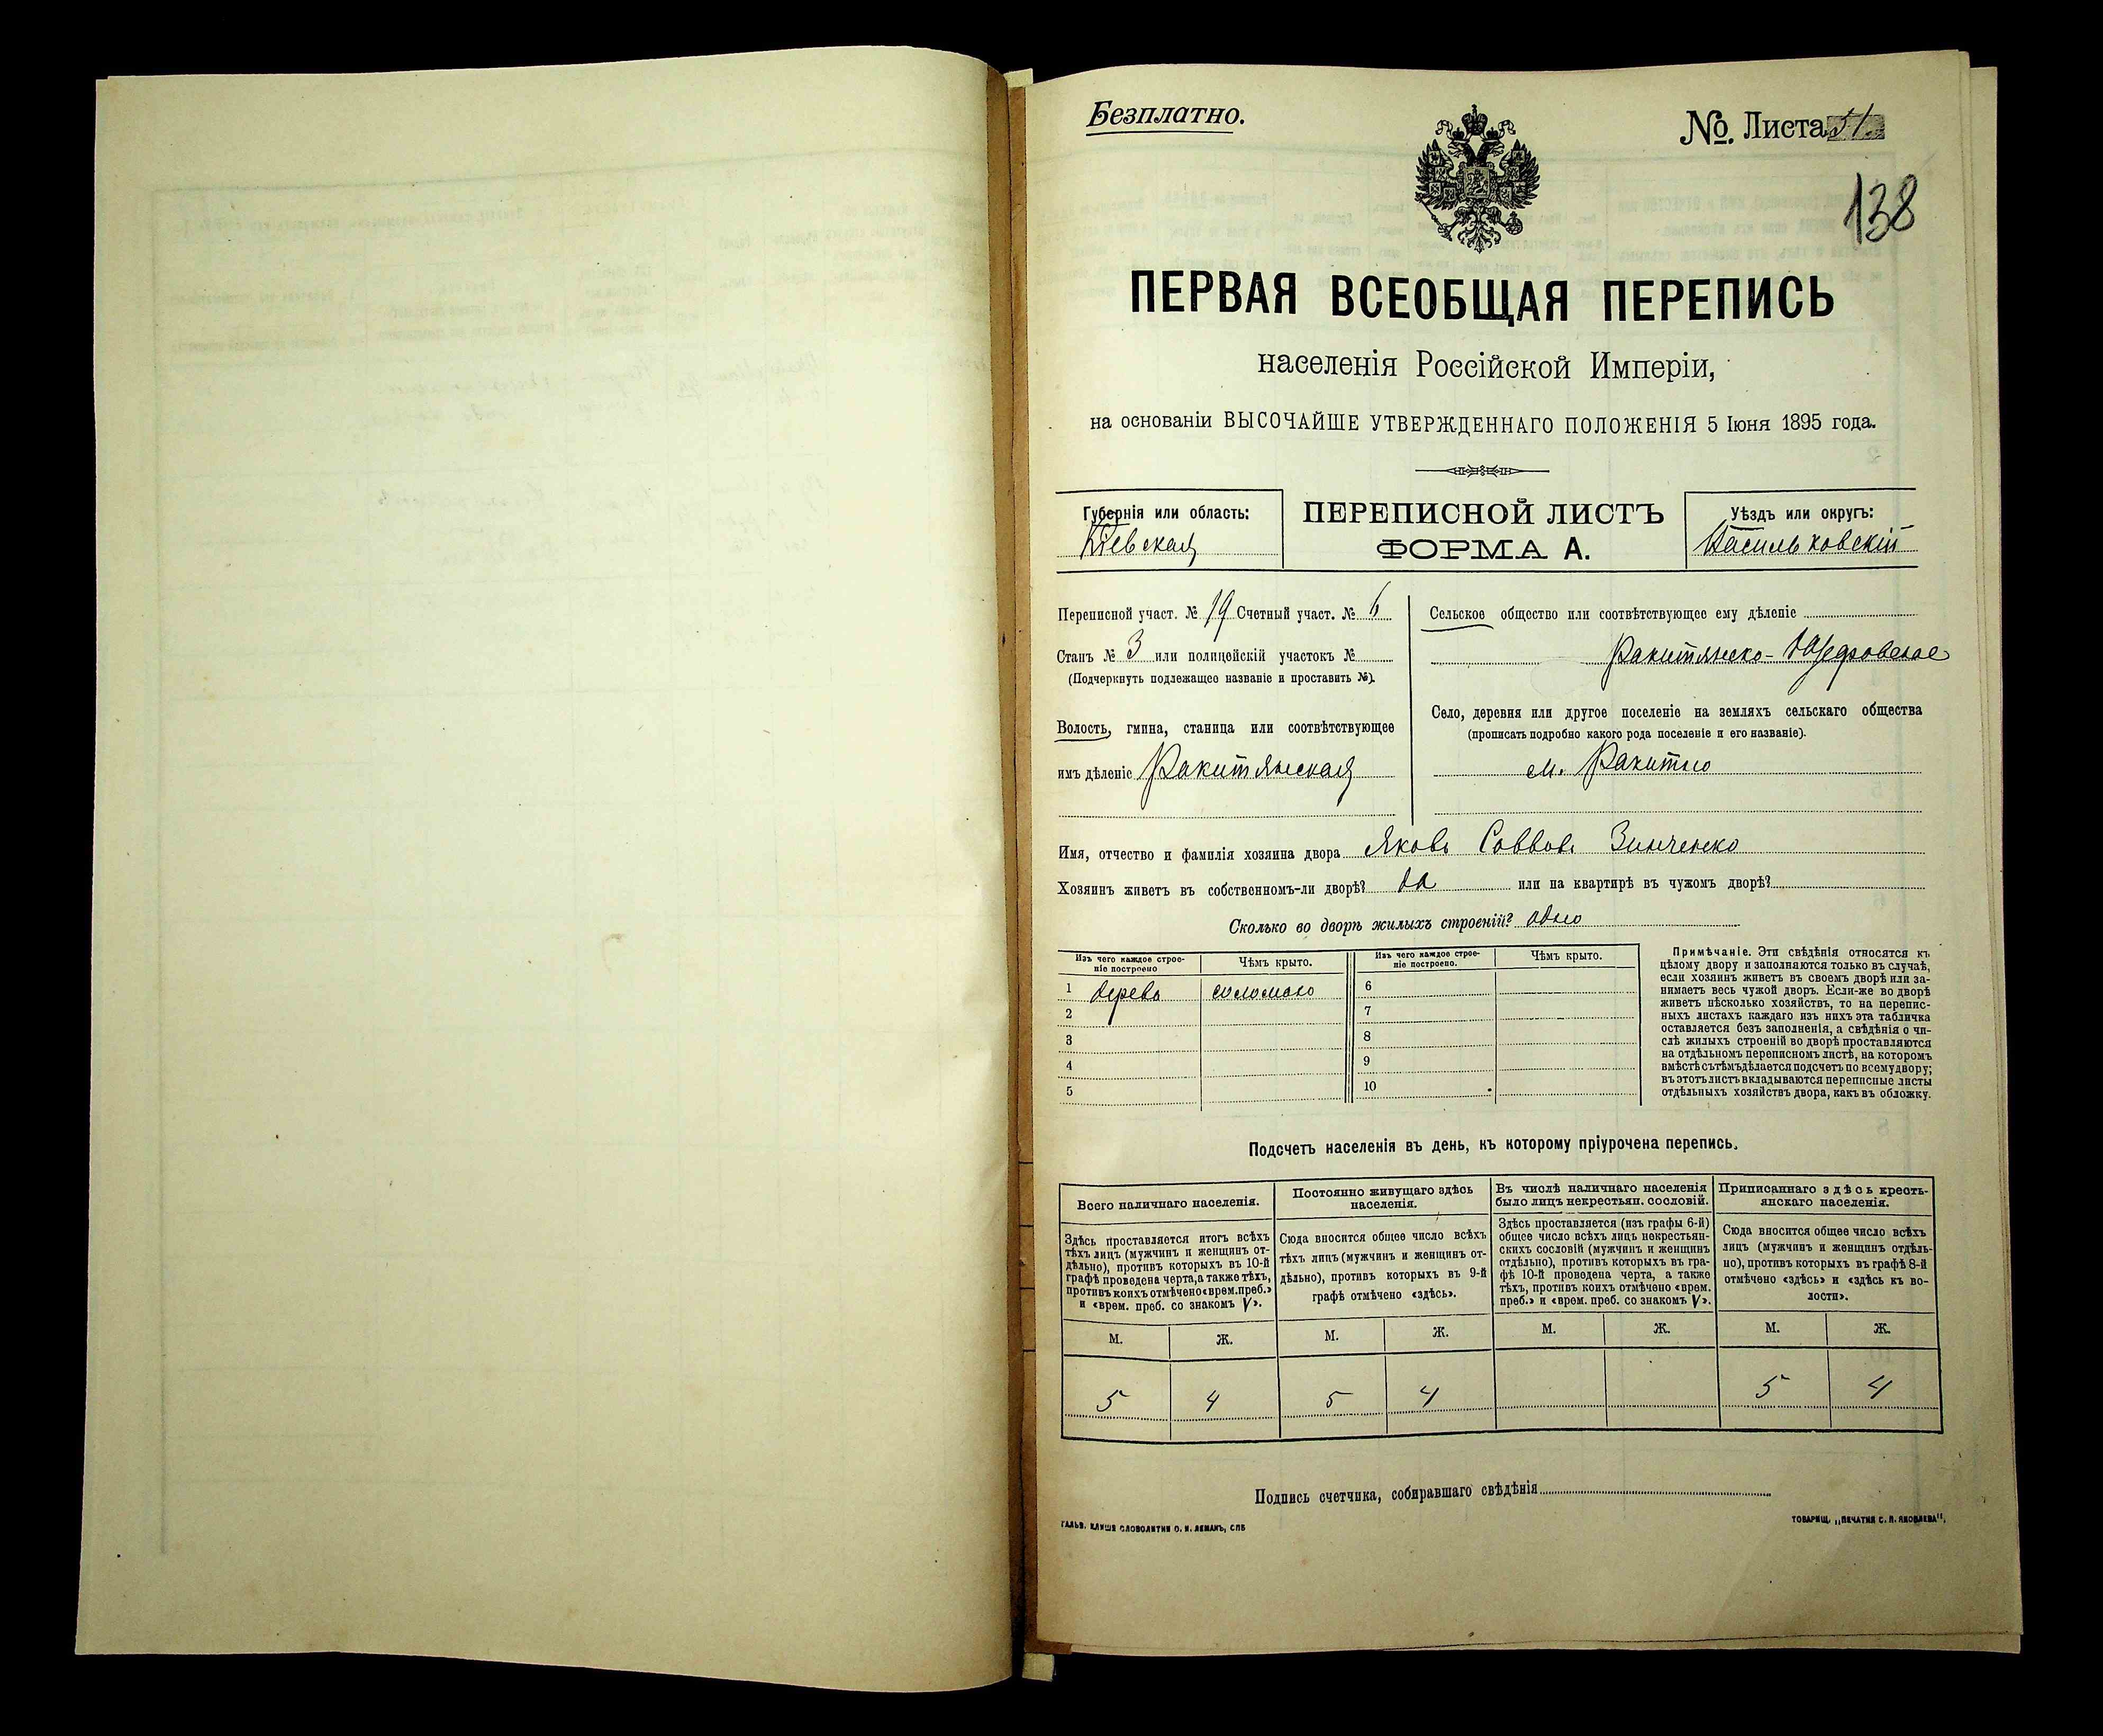 Безплатно.
№. Листа 51.
138
ПЕРВАЯ ВСЕОБЩАЯ ПЕРЕПИСЬ
населенія Россійской Имперіи,
на основаніи ВЫСОЧАЙШЕ УТВЕРЖДЕННАГО ПОЛОЖЕНІЯ 5 Іюня 1895 года.
Губернія или область:
Кіевская
ПЕРЕПИСНОЙ ЛИСТЪ
ФОРМА А.
Уѣздъ или округъ:
Васильковскій
Переписной участ. № 19 Счетный участ. № 6
Станъ № 3 или полицейскій участокъ №
(Подчеркнуть подлежащее названіе и проставить №).
Волость, гмина, станица или соотвѣтствующее
имъ дѣленіе Ракитянская
Сельское общество или соотвѣтствующее ему дѣленіе
Ракитянско-
Село, деревня или другое поселеніе на земляхъ сельскаго общества
(прописать подробно какого рода поселеніе и его названіе).
м. Ракитно
Имя, отчество и фамилія хозяина двора Яковъ Саввовъ Зинченко
Хозяинъ живетъ въ собственномъ-ли дворѣ? да или на квартирѣ въ чужомъ дворѣ?
Сколько во дворѣ жилыхъ строеній? одно
Изъ чего каждое строе-
ніе построено
Чѣмъ крыто.
Изъ чего каждое строе-
ніе построено.
Чѣмъ крыто.
1 дерева соломою 6
2 7
3 8
4 9
5 10
Примѣчаніе. Эти свѣдѣнія относятся къ
цѣлому двору и заполняются только въ случаѣ,
если хозяинъ живетъ въ своемъ дворѣ или за-
нимаетъ весь чужой дворъ. Если-же во дворѣ
живетъ нѣсколько хозяйствъ, то на перепис-
ныхъ листахъ каждаго изъ нихъ эта табличка
оставляется безъ заполненія, а свѣдѣнія о чи-
слѣ жилыхъ строеній во дворѣ проставляются
на отдѣльномъ переписномъ листѣ, на которомъ
вмѣстѣ сътѣмъ дѣлается подсчетъ по всему двору;
въ этотъ листъ вкладываются переписные листы
отдѣльныхъ хозяйствъ двора, какъ въ обложку.
Подсчетъ населенія въ день, къ которому пріурочена перепись.
Всего наличнаго населенія.
Здѣсь проставляется итогъ всѣхъ
тѣхъ лицъ (мужчинъ и женщинъ от-
дѣльно), противъ которыхъ въ 10-й
графѣ проведена черта, а также тѣхъ,
противъ коихъ отмѣчено «врем. преб.»
и «врем. преб. со знакомъ V».
Постоянно живущаго здѣсь
населенія.
Сюда вносится общее число всѣхъ
тѣхъ лицъ (мужчинъ и женщинъ от-
дѣльно), противъ которыхъ въ 9-й
графѣ отмѣчено «здѣсь».
Въ числѣ наличнаго населенія
было лицъ некрестьян. сословій.
Здѣсь проставляется (изъ графы 6-й)
общее число всѣхъ лицъ некрестьян-
скихъ сословій (мужчинъ и женщинъ
отдѣльно), противъ которыхъ въ гра-
фѣ 10-й проведена черта, а также
тѣхъ, противъ коихъ отмѣчено «врем.
преб.» и «врем. преб. со знакомъ V».
Приписаннаго здѣсь кресть-
янскаго населенія.
Сюда вносится общее число всѣхъ
лицъ (мужчинъ и женщинъ отдѣль-
но), противъ которыхъ въ графѣ 8-й
отмѣчено «здѣсь» и «здѣсь къ во-
лости».
М. Ж. М. Ж. М. Ж. М. Ж.
5 4 5 4 5 4
Подпись счетчика, собиравшаго свѣдѣнія
ГАЛЬВ. КЛИШЕ СЛОВОЛИТНИ О. И. ЛЕМАНЪ, СПБ
ТОВАРИЩ. „ПЕЧАТНЯ С. П. ЯКОВЛЕВА“,